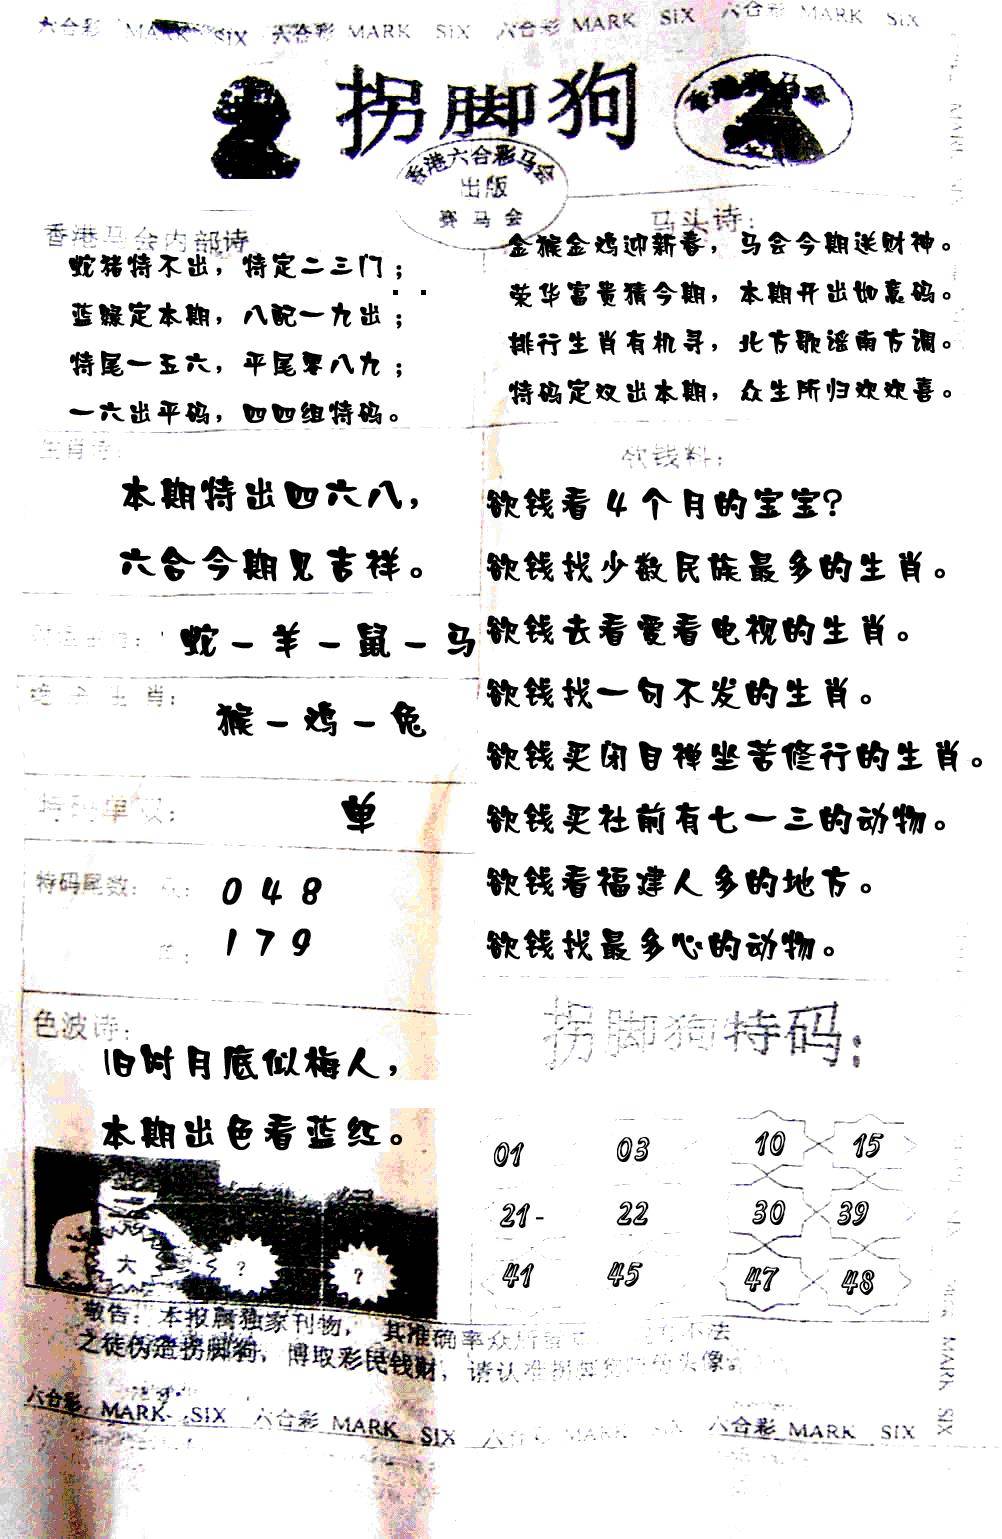 六合彩 MARK SIX 六合彩 MARK SIX 六合彩 MARK SIX 六合彩 MARK SIX
拐脚狗
香港六合彩马会
出版
赛马会
香港马会内部诗
蛇猪特不出，特定二三门；
蓝绿定本期，八配一九出；
特尾一五六，平尾零八九；
一六出平码，四四组特码。
马头诗：
金猴金鸡迎新春，马会今期送财神。
荣华富贵猜今期，本期开出如意码。
排行生肖有机寻，北方歌谣南方调。
特码定双出本期，众生所归欢欢喜。
生肖诗：
本期特出四六八，
六合今期见吉祥。
蛇－羊－鼠－马
生肖：
猴－鸡－兔
特码单双：
单
特码尾数：
0 4 8
1 7 9
色波诗：
旧时月底似梅人，
本期出色看蓝红。
大 ? ?
欲钱料：
欲钱看 4 个月的宝宝?
欲钱找少数民族最多的生肖。
欲钱去看爱看电视的生肖。
欲钱找一句不发的生肖。
欲钱买闭目禅坐苦修行的生肖。
欲钱买社前有七一三的动物。
欲钱看福建人多的地方。
欲钱找最多心的动物。
拐脚狗特码：
01 03 10 15
21- 22 30 39
41 45 47 48
敬告：本报属独家刊物，其准确率众所 不法
之徒伪造拐脚狗，博取彩民钱财，请认准拐脚狗 头像。
六合彩 MARK SIX 六合彩 MARK SIX 六合彩 MARK SIX 六合彩 MARK SIX
MARK SIX